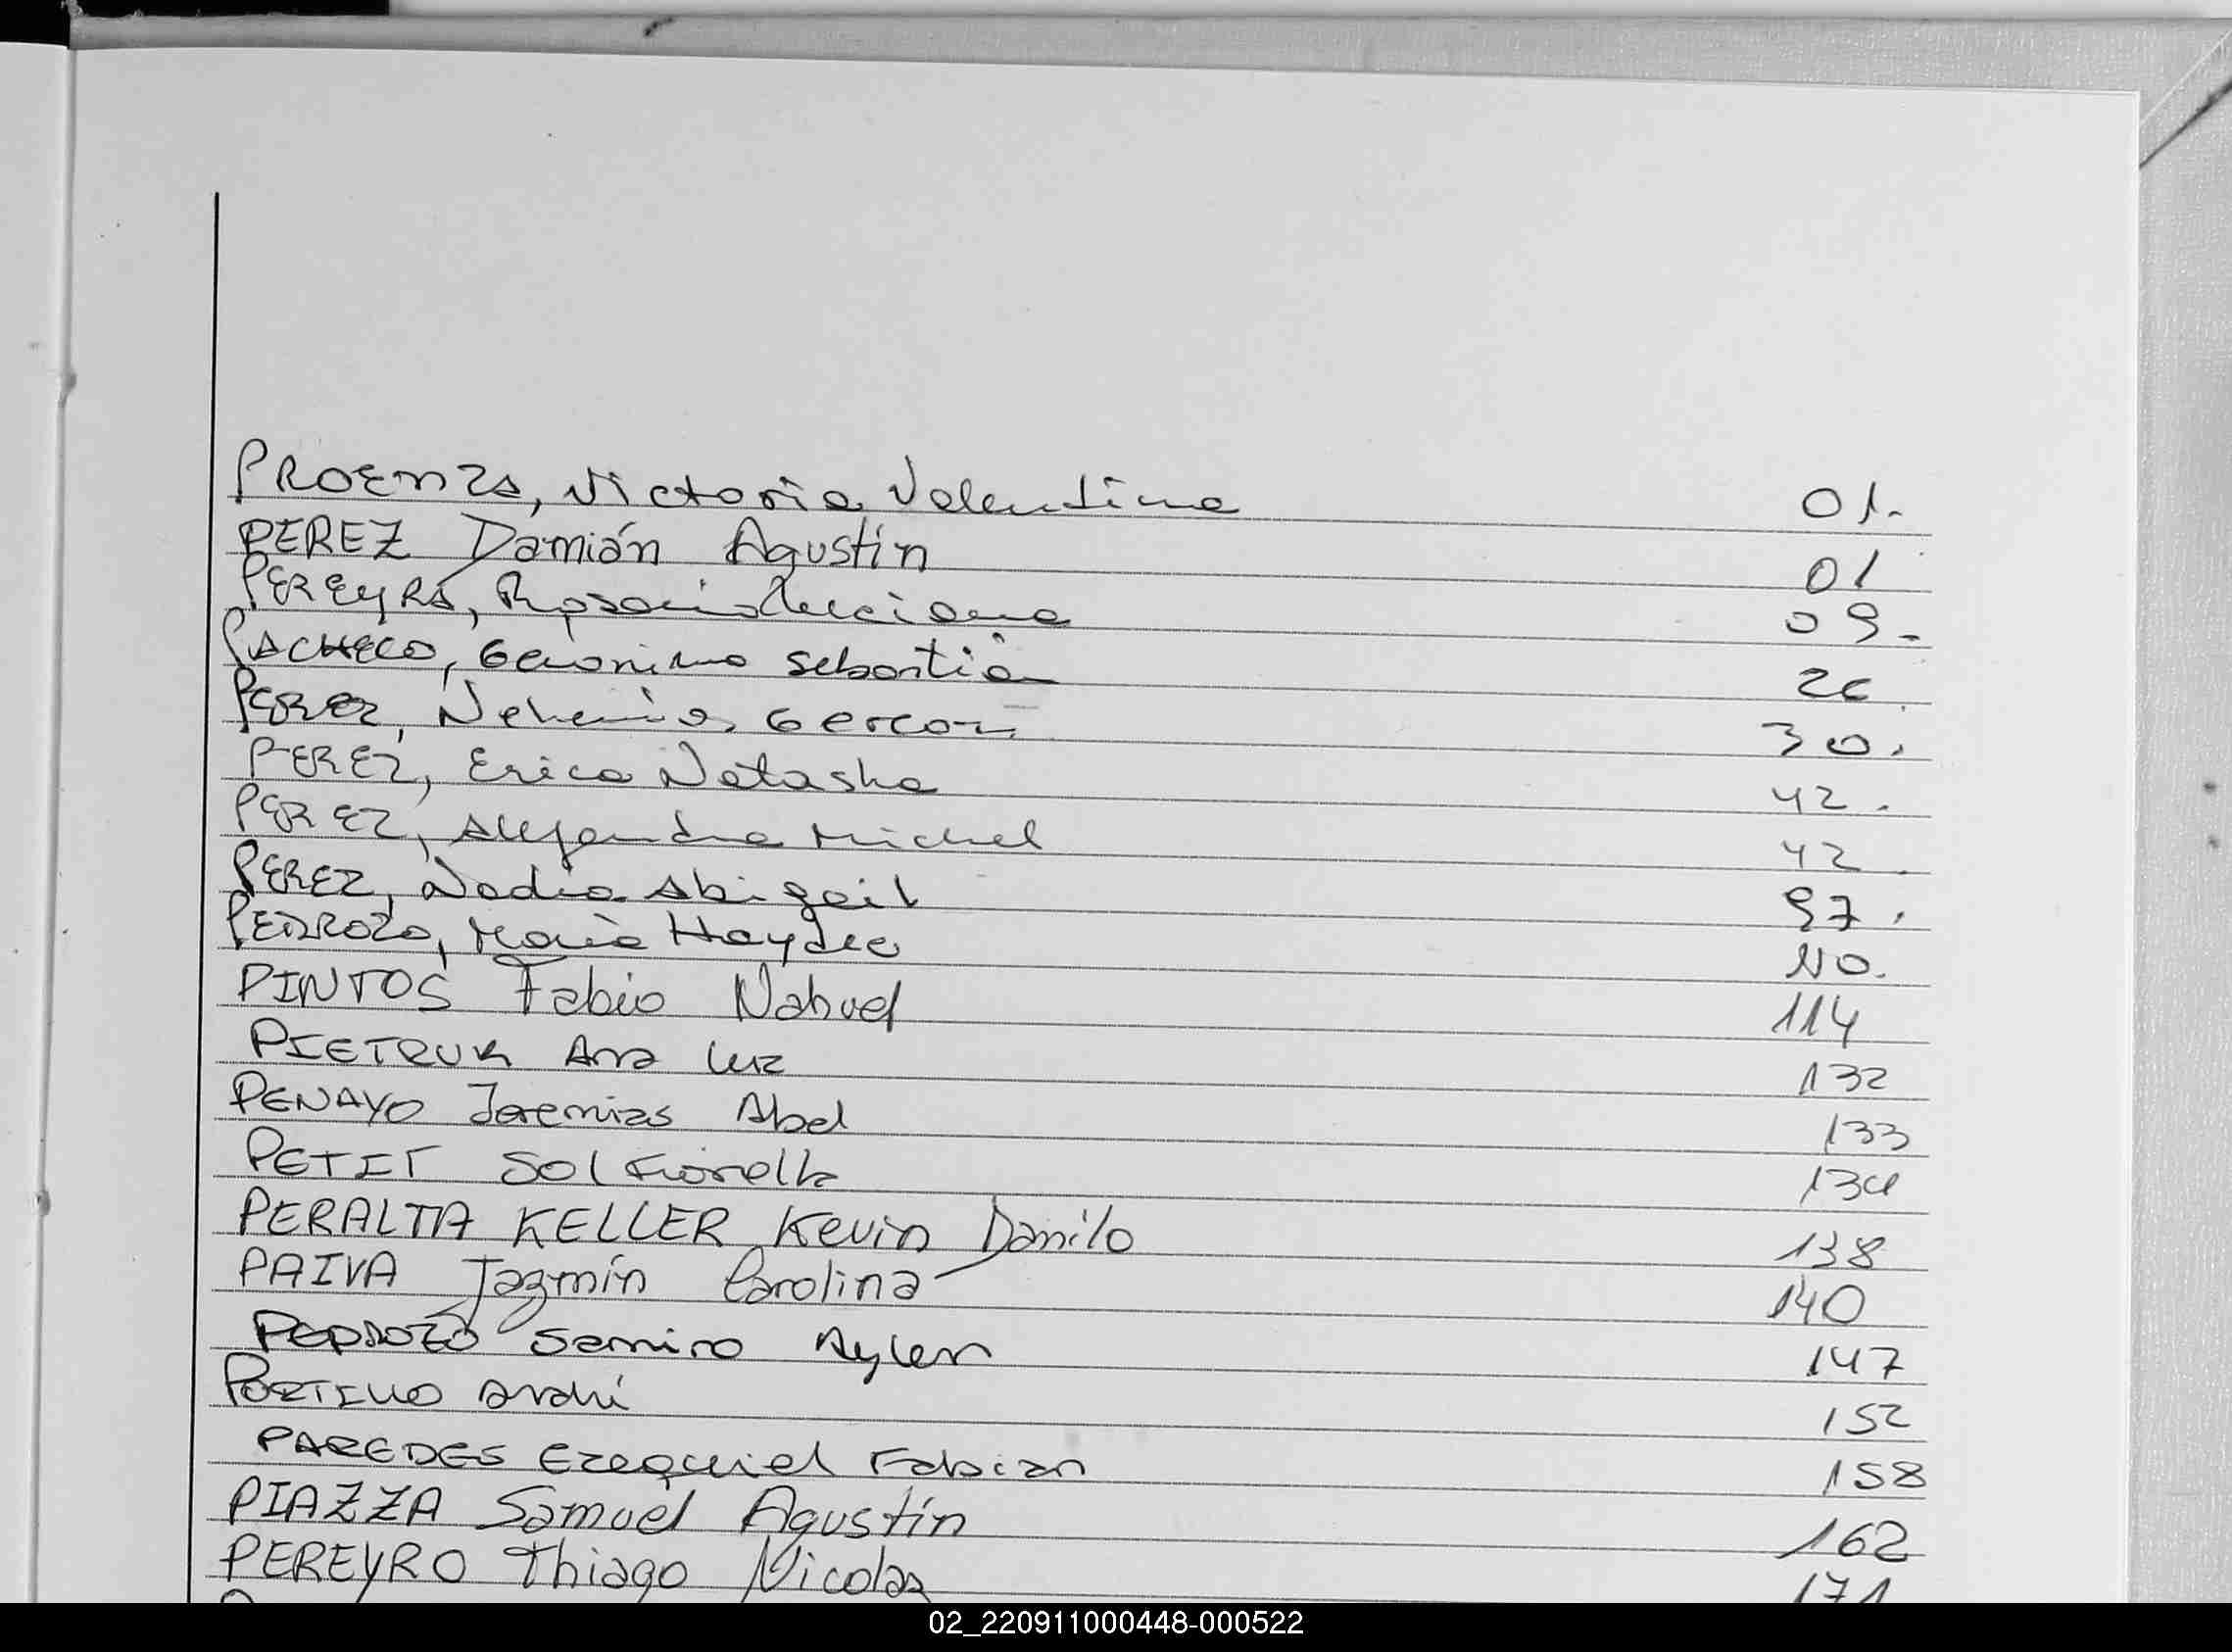 PROENZA, Victoria Valentina 01.
PEREZ Damián Agustín 01
PEREYRA, Rosario Luciana 09.
PACHECO, Geronimo Sebastián 26.
PEREZ, Nehemias Gerson 30.
PEREZ, Erica Natasha 42.
PEREZ, Alejandra Michel 42.
PEREZ, Nadia Abigail 97.
PEDROZO, María Haydee 110.
PINTOS Fabio Nahuel 114
PIETRUK Ana Luz 132
PENAYO Jeremias Abel 133
PETIT Sol Fiorella 134
PERALTA KELLER Kevin Danilo 138
PAIVA Jazmín Carolina 140
PEDROZO Samiro Aylen 147
PORTILLO Arahí 152
PAREDES Ezequiel Fabian 158
PIAZZA Samuel Agustín 162
PEREYRO Thiago Nicolas 171
02_220911000448-000522